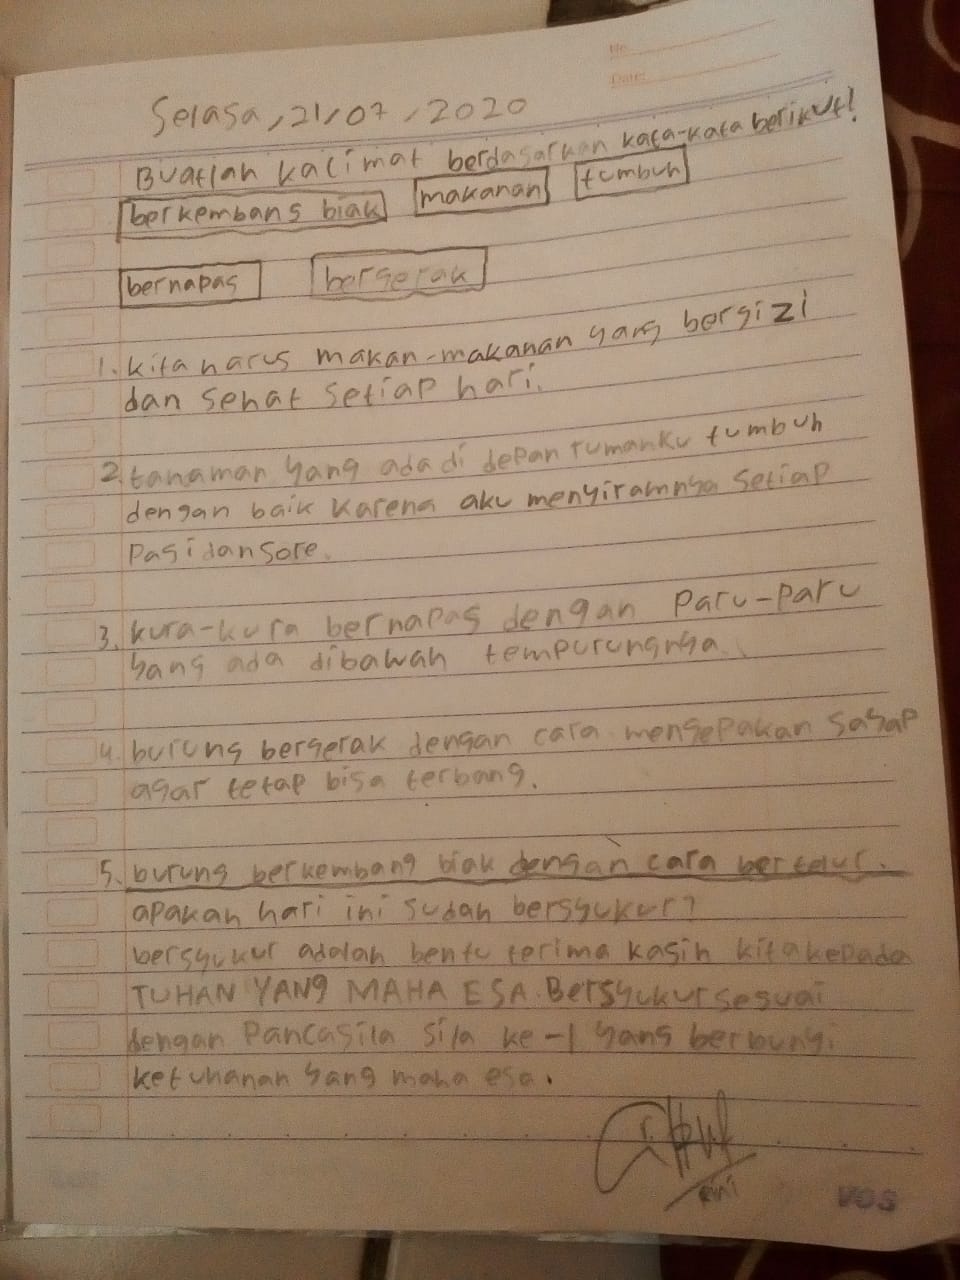 No.
Date:
Selasa, 21/07, 2020
Buatlah kalimat berdasarkan kata-kata berikut!
berkembang biak makanan tumbuh
bernapas bergerak
1. kita harus makan-makanan yang bergizi
dan sehat setiap hari.
2. tanaman yang ada di depan rumahku tumbuh
dengan baik karena aku menyiramnya setiap
pagi dan sore.
3. kura-kura bernapas dengan paru-paru
yang ada dibawah tempurungnya.
4. burung bergerak dengan cara mengepakan sayap
agar tetap bisa terbang.
5. burung berkembang biak dengan cara bertelur.
apakah hari ini sudah bersyukur?
bersyukur adalah bentu terima kasih kita kepada
TUHAN YANG MAHA ESA. Bersyukur sesuai
dengan Pancasila sila ke-1 yang berbunyi
ketuhanan yang maha esa.
VOS